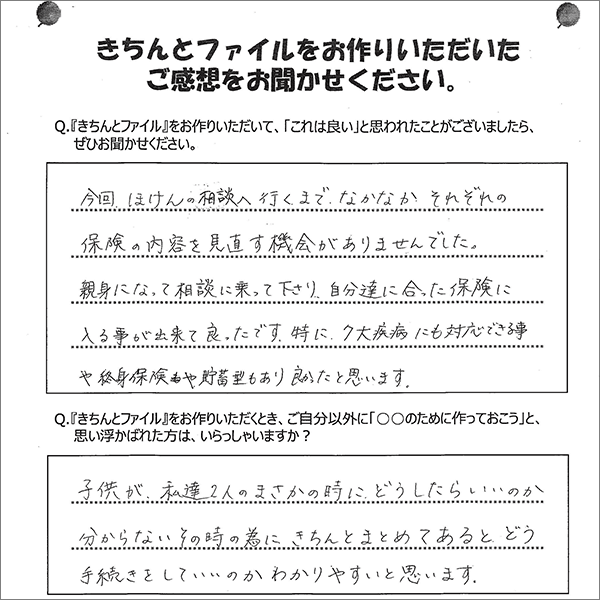 きちんとファイルをお作りいただいた
ご感想をお聞かせください。
Q.『きちんとファイル』をお作りいただいて、「これは良い」と思われたことがございましたら、
ぜひお聞かせください。
今回、ほけんの相談へ行くまで、なかなか それぞれの
保険の内容を見直す機会がありませんでした。
親身になって相談に乗って下さり、自分達に合った保険に
入る事が出来て良ったです。特に、7大疾病にも対応できる事
や終身保険や貯蓄型もあり良かったと思います。
Q.『きちんとファイル』をお作りいただくとき、ご自分以外に「○○のために作っておこう」と、
思い浮かばれた方は、いらっしゃいますか？
子供が、私達2人のまさかの時に、どうしたらいいのか
分からないその時の為に、きちんとまとめてあると、どう
手続きをしていいのか わかりやすいと思います。